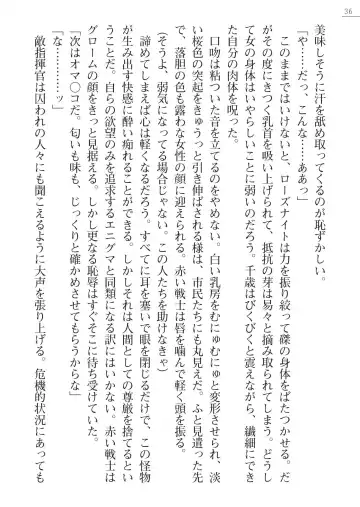 36
美味しそうに汗を舐め取ってくるのが恥ずかしい。
「や……だっ、こんな……ああっ」
このままではいけないと、ローズナイトは力を振り絞って磔の身体をばたつかせる。だ
がその度にきつく乳首を吸い上げられて、抵抗の芽は易々と摘み取られてしまう。どうし
て女の身体はいやらしいことに弱いのだろう。千歳はびくびくと震えながら、繊細にでき
た自分の肉体を呪った。
口吻は粘ついた音を立てるのをやめない。白い乳房をむにゅむにゅと変形させられ、淡
い桜色の突起をきゅうっと引き伸ばされる様は、市民たちにも丸見えだ。ふと見遣った先
で、落胆の色も露わな女性の顔に迎えられる。赤い戦士は唇を噛んで軽く頭を振る。
（そうよ、弱気になってる場合じゃない。この人たちを助けなきゃ）
諦めてしまえば心は軽くなるだろう。すべてに耳を塞いで眼を閉じるだけで、この怪物
が生み出す快感に酔い痴れることができる。しかしそれは人間としての尊厳を捨てるとい
うことだ。自らの欲望のみを追求するエニグマと同類になる訳にはいかない。赤い戦士は
グロームの顔をきっと見据える。しかし更なる恥辱はすぐそこに待ち受けていた。
「次はオマ〇コだ。匂いも味も、じっくりと確かめさせてもらうからな」
「な…………ッ」
敵指揮官は囚われの人々にも聞こえるように大声を張り上げる。危機的状況にあっても